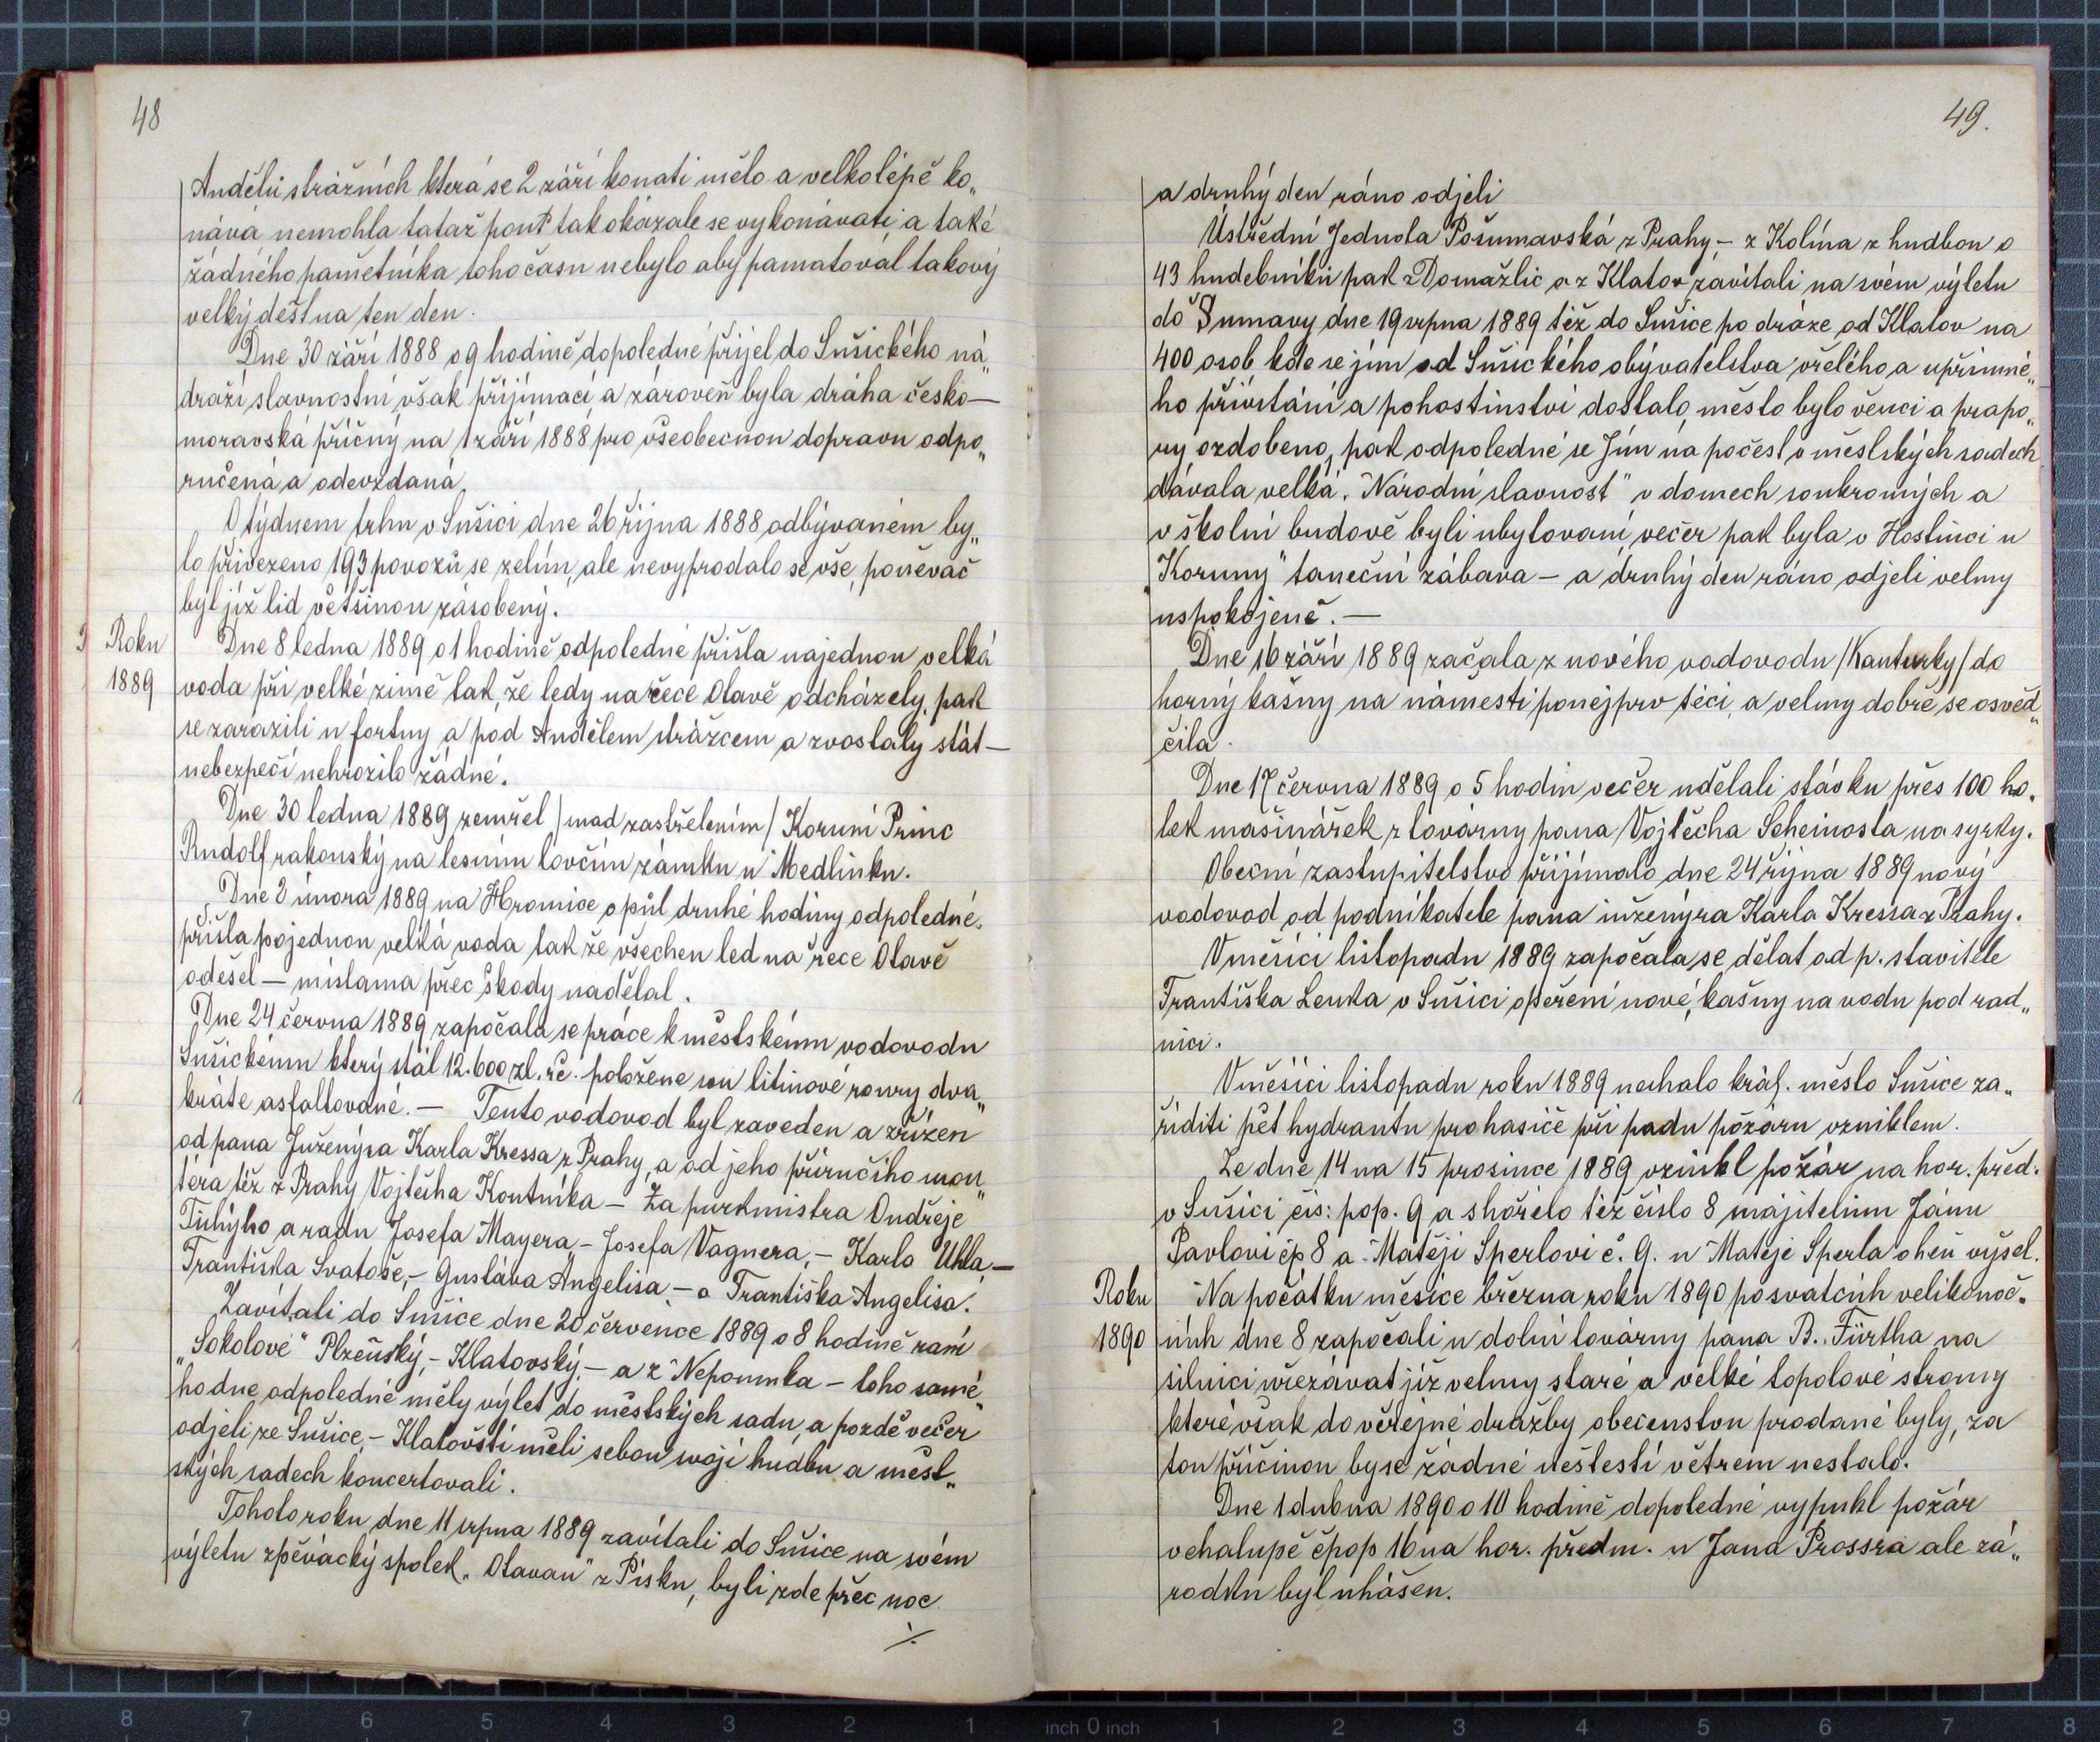 48
Andělů strážních která se 2 září konati mělo a velkolépě ko„
nává nemohla tatáž pouť tak okázale se vykonávati a také
žádného pamětníka toho času nebylo aby pamatovál takový
velký déšť na ten den.
Dne 30 září 1888 o 9 hodině dopoledné přijel do Sušického ná„
draží slavnostní však přijímací a zároveň byla dráha česko—
moravská příčný na 1 září 1888 pro všeobecnou dopravu odpo„
ručená a odevzdaná.
O týdnem trhu v Sušici dne 26 října 1888 odbývaném by„
lo přivezeno 193 povozů se zelím, ale nevyprodalo se vše, poněvač
býl již lid většinou zásobený.
Roku
1889
Dne 8 ledna 1889 o 1 hodině odpoledné přišla najednou velká
voda při velké zimě tak, že ledy na řece Otavě odcházely, pak
se zarazili u fortny a pod Andělem strážcem a zvostaly stát—
nebezpečí nehrozilo žádné.
Dne 30 ledna 1889 zemřel /snad zastřelením/ Koruní Princ
Rudolf rakouský na lesním lovčím zámku u Medlinku.
Dne 2 února 1889 na Hromice o půl druhé hodiny odpoledné
přišla pojednou velká voda tak že všechen led na řece Otavě
odešel — místama přec škody nadělal.
Dne 24 června 1889 započala se práce k městskému vodovodu
Sušickému který stál 12.600 zl. rč. položene sou litinové roury dva„
kráte asfaltované. — Tento vodovod byl zaveden a zřízen
od pana Inženýra Karla Kressa z Prahy, a od jeho příručího mon„
téra též z Prahy Vojtěcha Koutníka — Za purkmistra Ondřeje
Tichýho a radu Josefa Mayera, — Josefa Vagnera, — Karla Uhla, —
Františka Svatoše, — Gustáva Angelisa — a Františka Angelisa.
Zavítali do Sušice dne 20 července 1889 o 8 hodině raní
„Sokolové“ Plzeňský, — Klatovský, — a z Nepomuka — toho samé„
ho dne odpoledné měly výlet do městských sadu, a pozdě večer
odjeli ze Sušice, — Klatovští měli sebou svoji hudbu a měst„
ských sadech koncertovali.
Tohoto roku dne 11 srpna 1889 zavítali do Sušice na svém
výletu zpěvácký spolek „Otavan“ z Písku, byli zde přec noc
./.
49.
a druhý den ráno odjeli
Ústřední Jednota Pošumavská z Prahy — z Kolína z hudbou o
43 hudebníků pak z Domažlic a z Klatov zavítali na svém výletu
do Šumavy dne 19 srpna 1889 též do Sušice po dráze od Klatov na
400 osob kde se jim od Sušického obývatelstva vřelého a upřímné„
ho přivítání a pohostinství dostalo, město bylo věnci a prapo„
ry ozdobeno, pak odpoledné se Jim na počest v městských sadech
dávala velká „Národní slavnost“ v domech soukromých a
v školní budově byli ubytovaní večer pak byla v Hostinci u
„Koruny“ taneční zábava — a druhý den ráno odjeli velmy
uspokojeně. —
Dne 16 září 1889 začala z nového vodovodu /Kanturky/ do
horný kašny na náměstí ponejprv téci, a velmy dobře se osvěd„
čila.
Dne 17 června 1889 o 5 hodin večer udělali stávku přes 100 ho„
lek mašinářek z továrny pana Vojtěcha Scheinosta na syrky.
Obecní zastupitelstvo přijímalo dne 24 října 1889 nový
vodovod od podnikatele pana inženýra Karla Kressa z Prahy.
V měsíci listopadu 1889 započala se dělat od p. stavitele
Františka Lenka v Sušici opeření nové, kašny na vodu pod rad„
nicí.
V měsíci listopadu roku 1889 nechalo král. město Sušice za„
říditi pět hydrantu pro hasiče při padu požáru vzniklem.
Ze dne 14 na 15 prosince 1889 vznikl požár na hor. před.
v Sušici čis: pop. 9 a shořelo též číslo 8 majitelum Jánu
Pavlovi čp 8 a Matěji Sperlovi č. 9. u Matěje Sperla oheň výšel.
Roku
1890
Na počátku měsíce března roku 1890 po svatcích velikonoč„
ních dne 8 započali u dolní továrny pana B. Fürtha na
silnici uřezávat již velmy staré a velké topolové stromy
které však do věřejné dražby obecenstvu prodané byly, za
tou příčinou by se žádné neštestí větrem nestalo.
Dne 1 dubna 1890 o 10 hodině dopoledné vypukl požár
v chalupě čpop 16 na hor. předm. u Jana Prossra ale zá„
rodku byl uhášen.